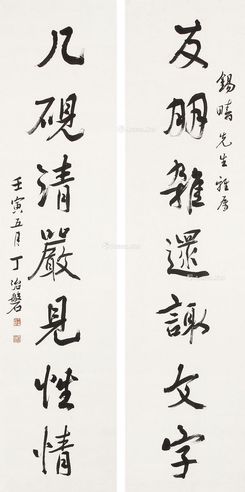 錫晴先生雅屬
友朋雜遝諏文字
几硯清嚴見性情
壬寅五月丁治磐